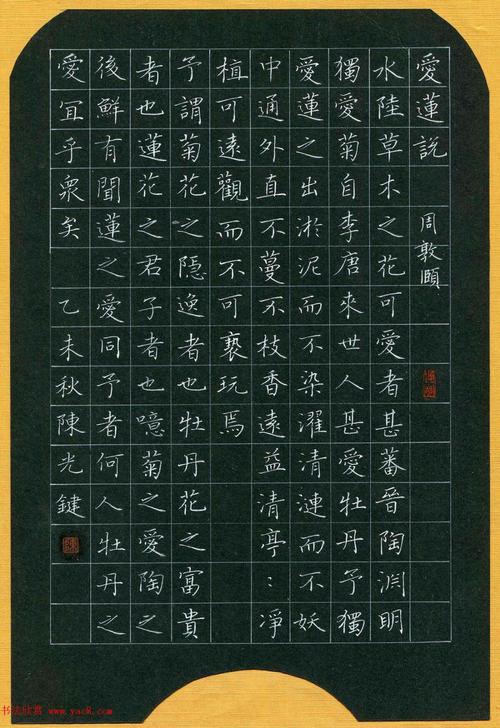 愛蓮說 周敦頤
水陸草木之花可愛者甚蕃晉陶淵明
獨愛菊自李唐來世人甚愛牡丹予獨
愛蓮之出淤泥而不染濯清漣而不妖
中通外直不蔓不枝香遠益清亭：凈
植可遠觀而不可褻玩焉
予謂菊花之隱逸者也牡丹花之富貴
者也蓮花之君子者也噫菊之愛陶之
後鮮有聞蓮之愛同予者何人牡丹之
愛冝乎衆矣 乙未秋陳光鍵
书法欣赏 www.yac8.com